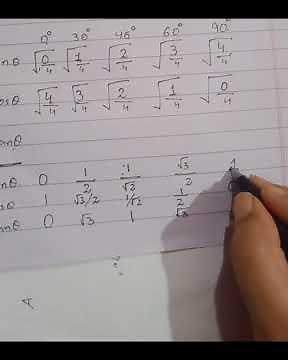 0° 30° 45° 60° 90°
nθ √0/4 √1/4 √2/4 √3/4 √4/4
osθ √4/4 √3/4 √2/4 √1/4 √0/4
anθ
nθ 0 1/2 1/√2 √3/2 1
osθ 1 √3/2 1/√2 1/2 0
anθ 0 √3 1 √3